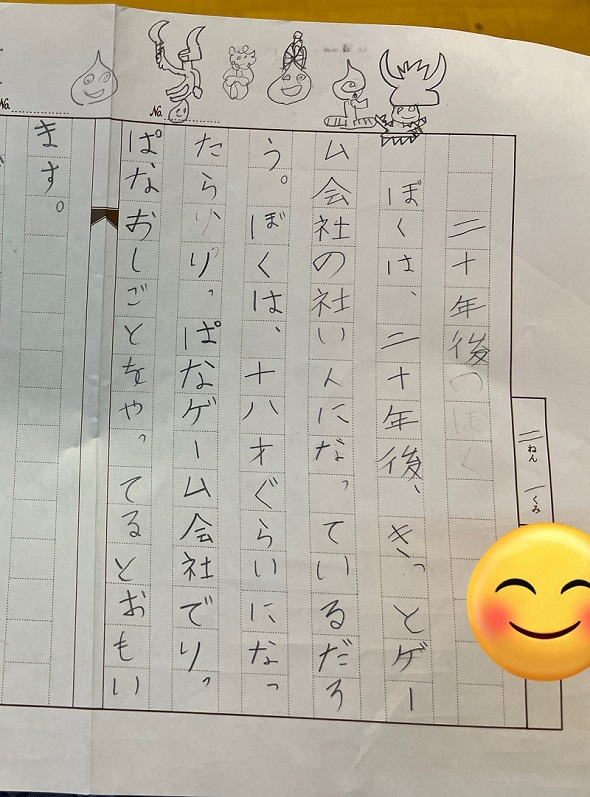 No.
No.
二ねん 一くみ
二十年後のぼく
ぼくは、二十年後、きっとゲー
ム会社の社いんになっているだろ
う。ぼくは、十八才ぐらいになっ
たら、りっぱなゲーム会社でりっ
ぱなおしごとをやってるとおもい
ます。